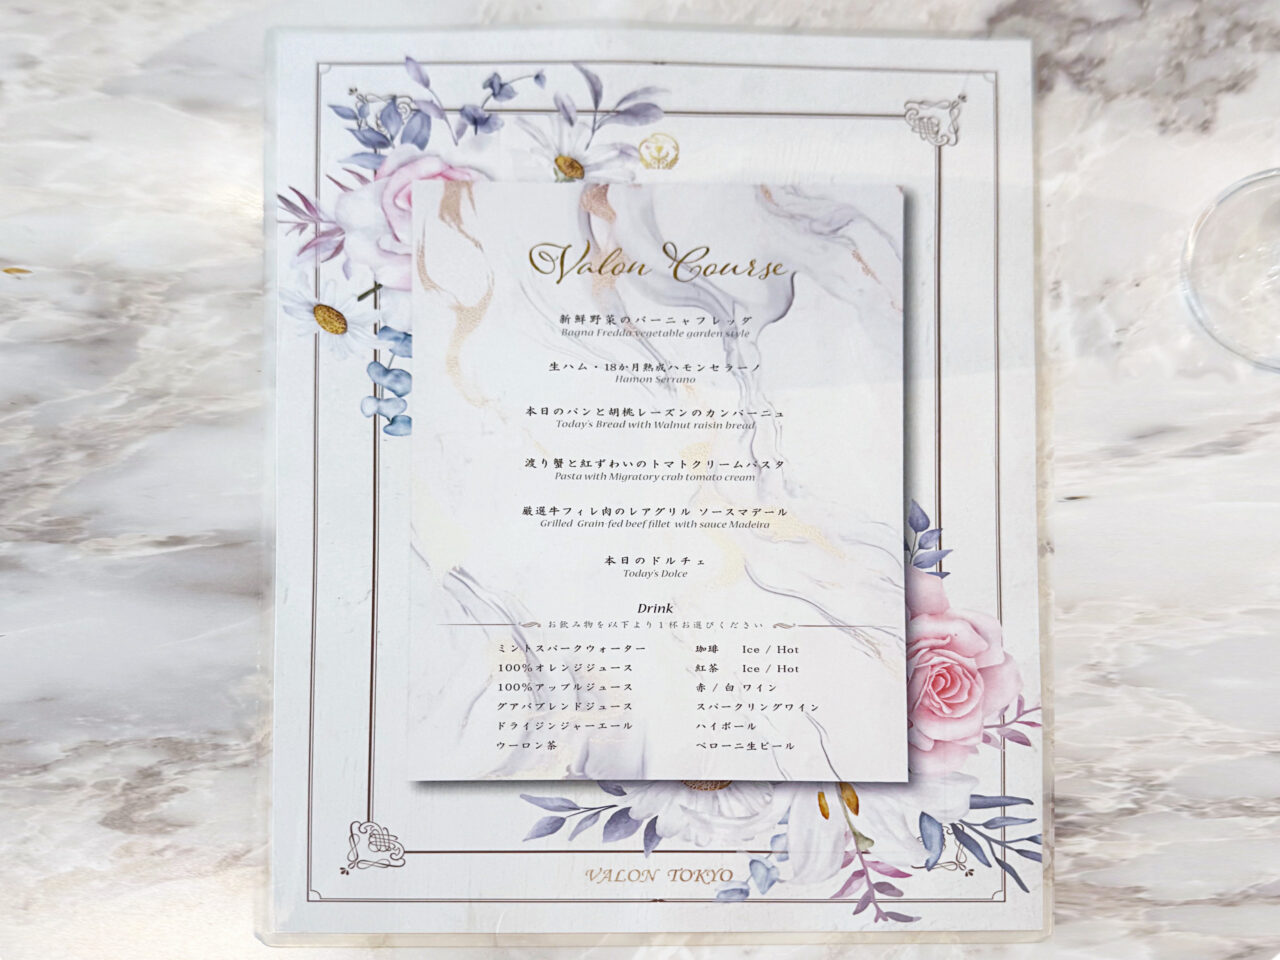 Valon Course
新鮮野菜のバーニャフレッダ
Bagna Fredda vegetable garden style
生ハム・18か月熟成ハモンセラーノ
Hamon Serrano
本日のパンと胡桃レーズンのカンパーニュ
Today's Bread with Walnut raisin bread
渡り蟹と紅ずわいのトマトクリームパスタ
Pasta with Migratory crab tomato cream
厳選牛フィレ肉のレアグリル ソースマデール
Grilled Grain-fed beef fillet with sauce Madeira
本日のドルチェ
Today's Dolce
Drink
お飲み物を以下より1杯お選びください
ミントスパークウォーター
珈琲 Ice / Hot
100%オレンジジュース
紅茶 Ice / Hot
100%アップルジュース
赤 / 白 ワイン
グアバブレンドジュース
スパークリングワイン
ドライジンジャーエール
ハイボール
ウーロン茶
ペローニ生ビール
VALON TOKYO